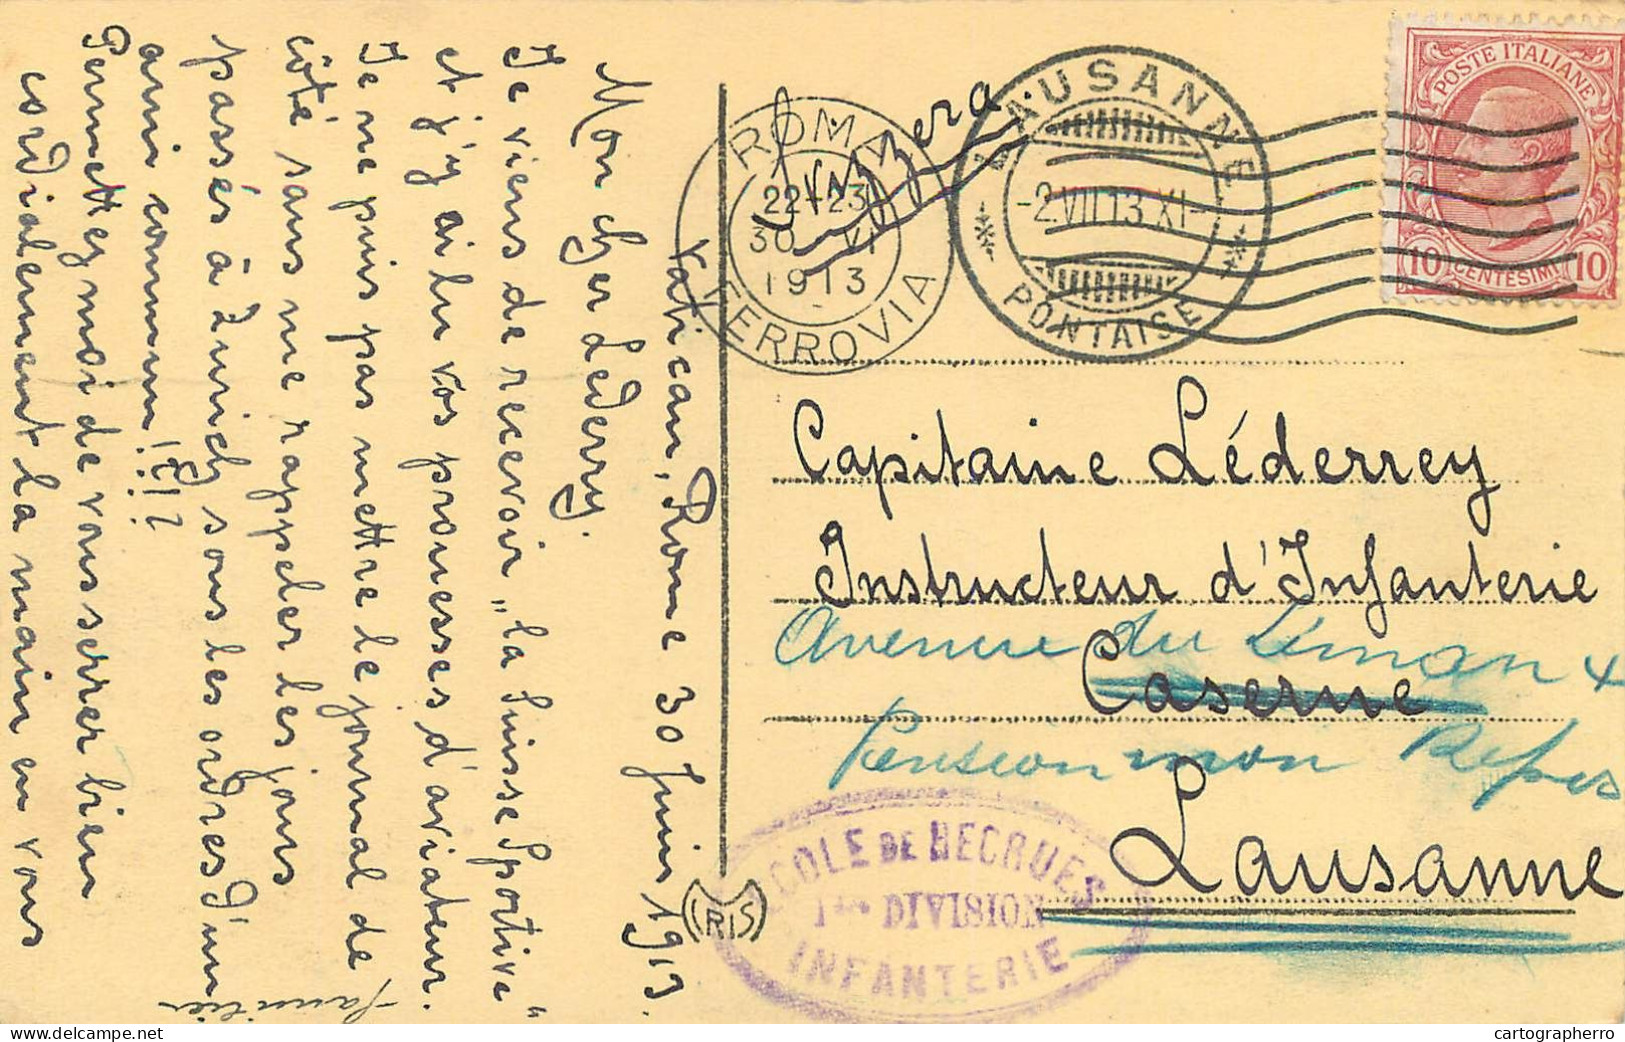 Vatican, Rome 30 Juin 1913.
Mon cher Léderrey.
Je viens de recevoir „la Suisse Sportive"
et j'y ai lu vos prouesses d'aviateur.
Je ne puis pas mettre le journal de
côté sans me rappeler les jours
passés à Zurich sous les ordres d'un
ami commun!?!?
Permettez moi de vous serrer bien
cordialement la main en vous
ROMA
FERROVIA
22-23
30 VI
1913
Svizzera
LAUSANNE
-2.VII.13.XI-
PONTAISE
POSTE ITALIANE
10 CENTESIMI 10
Capitaine Léderrey
Instructeur d'Infanterie
Avenue du Léman 4
Caserne
Pension mon Repos
Lausanne
ECOLE DE RECRUES
1ère DIVISION
INFANTERIE
IRIS
delcampe.net
cartographerro